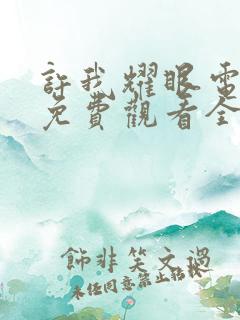 許我耀眼電
免費觀看全
飾非笑文過
未任同意禁止轉載